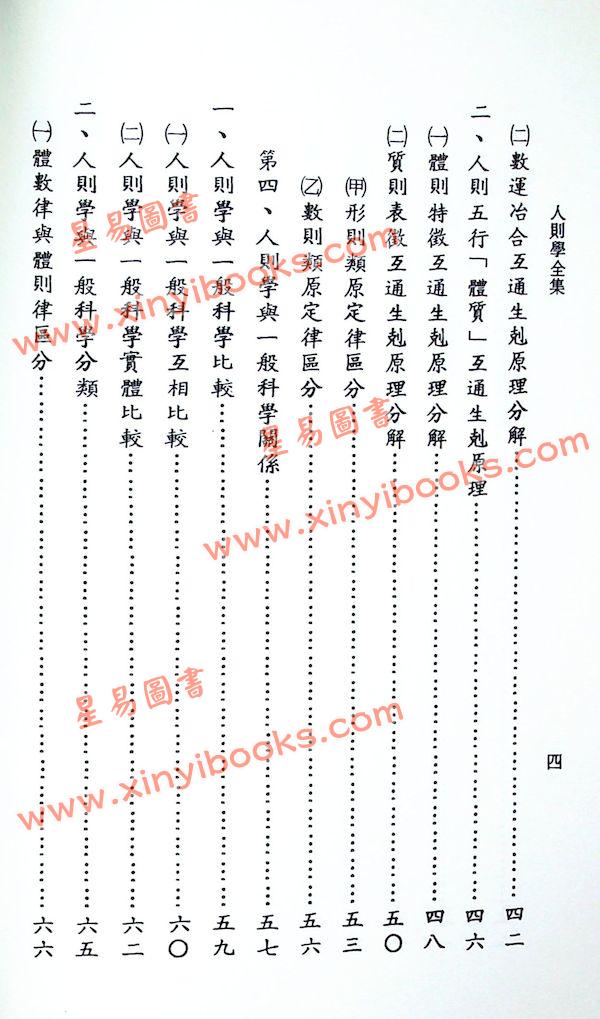 人則學全集
四
㈡數運冶合互通生剋原理分解……四二
二、人則五行「體質」互通生剋原理……四六
㈠體則特徵互通生剋原理分解……四八
㈡質則表徵互通生剋原理分解……五〇
㈙形則類原定律區分……五三
㈚數則類原定律區分……五六
第四、人則學與一般科學關係……五七
一、人則學與一般科學比較……五九
㈠人則學與一般科學互相比較……六〇
㈡人則學與一般科學實體比較……六二
二、人則學與一般科學分類……六五
㈠體數律與體則律區分……六六
星易圖書
www.xinyibooks.com
星易圖書
www.xinyibooks.com
星易圖書
www.xinyibooks.com